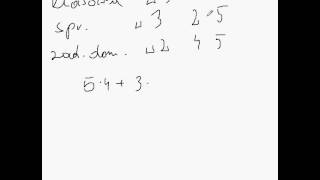 spr. 3 2 5
zad. dom. 2 4 5
5·4 + 3·